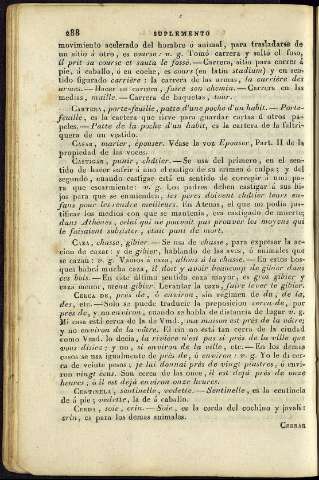 288 SUPLEMENTO
movimiento acelerado del hombre o animal, para trasladarse de
un sitio á otro, es course: v. g. Tomó carrera y saltó el foso,
il prit sa course et sauta le fossé. — Carrera, sitio para correr á
pie, á caballo, ó en coche, es cours (en latin stadium) y en sen-
tido figurado carrière: la carrera de las armas, la carrière des
armes. — Hacer su carrera, faire son chemin. — Carrera en las
medias, maille. — Carrera de baquetas, tour.
CARTERA, porte-feuille, patte d'une poche d'un habit. — Porte-
feuille, es la cartera que sirve para guardar cartas ó otros pa-
peles. — Patte de la poche d'un habit, es la cartera de la faltri-
quera de un vestido.
CASAR, marier, épouser. Véase la voz Epouser, Part. II de la
propiedad de las voces.
CASTIGAR, punir, châtier. — Se usa del primero, en el sen-
tido de hacer sufrir á uno el castigo de su crimen ó culpa; y del
segundo, cuando castigar está en sentido de corregir á uno pa-
ra que escarmiente: v. g. Los padres deben castigar á sus hi-
jos para que se enmienden, les peres doivent châtier leurs en-
fans pour les rendre meilleurs. En Atenas, el que no podia jus-
tificar los medios con que se mantenia, era castigado de muerte;
dans Athènes, celui qui ne pouvait pas prouver les moyens qui
le faisaient subsister, était puni de mort.
CAZA, chasse, gibier. — Se usa de chasse, para expresar la ac-
cion de cazar: y de gibier, hablando de las aves, ó animales que
se cazan: v. g. Vamos á caza, allons à la chasse. — En estos bos-
ques habrá mucha caza, il doit y avoir beaucoup de gibier dans
ces bois. — En este último sentido caza mayor, es gros gibier, y
caza menor, menu gibier. Levantar la caza, faire lever le gibier.
CERCA DE, près de, ó environ, sin régimen de du, de la,
des, etc. — Solo se puede traducir la preposicion cerca de, por
près de, y no environ, cuando se habla de distancia de lugar v. g.
Mi casa está cerca de la de Vmd., ma maison est près de la vôtre;
y no environ de la vôtre. El rio no está tan cerca de la ciudad
como Vmd. lo decia, la rivière n'est pas si près de la ville que
vous disiez; y no, si environ de la ville, etc. — En los demas
casos se usa igualmente de près de, ó environ: v. g. Yo le di cer-
ca de veinte pesos, je lui donnai près de vingt piastres, ó envi-
ron vingt ecus. Son cerca de las once, il est dejà près de onze
heures, ó il est déjà environ onze heures.
CENTINELA, sentinelle, vedette. — Sentinelle, es la centinela
de á pie; vedette, la de á caballo.
CERDA, soie, crin. — Soie, es la cerda del cochino y javalí:
crin, es para los demas animales.
CERRAR